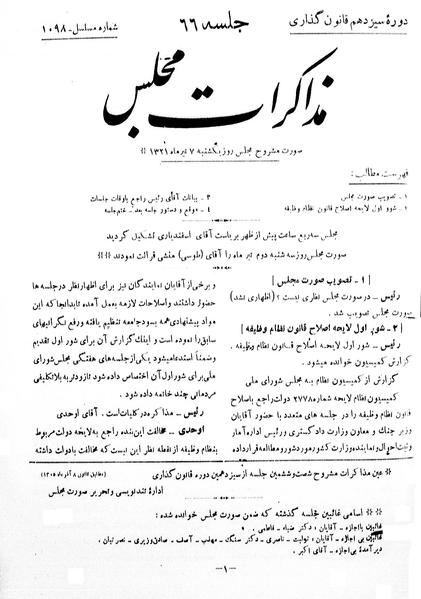 دورهٔ سیزدهم قانون گذاری
جلسه ۶۶
شماره مسلسل - ۱۰۹۸
مذاکرات مجلس
صورت مشروح مجلس روز یکشنبه ۷ تیر ماه ۱۳۲۱ ❊❊
فهرست مطالب:
۱ - تصویب صورت مجلس
۲ - شور اول لایحه اصلاح قانون نظام وظیفه
۳ - بیانات آقای رئیس راجع باوقات جلسات
۴ - موقع و دستور جلسه بعد - ختم جلسه
مجلس سه ربع ساعت پیش از ظهر بریاست آقای اسفندیاری تشکیل گردید
صورت مجلس روز سه شنبه دوم تیر ماه را آقای (طوسی) منشی قرائت نمودند ❊❊
[ ۱ - تصویب صورت مجلس ]
رئیس - در صورت مجلس نظری نیست؟ (اظهاری نشد)
صورت مجلس تصویب شد.
[ ۲ - شور اول لایحه اصلاح قانون نظام وظیفه ]
رئیس - شور اول لایحه اصلاح قانون نظام وظیفه.
گزارش کمیسیون خوانده میشود.
گزارش از کمیسیون نظام به مجلس شورای ملی
کمیسیون نظام لایحه شماره ۲۷۷۸ دولت راجع باصلاح
قانون نظام وظیفه را در جلسه های متعدد با حضور آقایان
وزیر جنگ و معاون وزارت دادگستری و رئیس اداره آمار
و ثبت احوال و نماینده وزارت کشور مورد شور و مطالعه قرار داده
و برخی از آقایان نمایندگان نیز برای اظهار نظر در جلسه ها
حضور داشتند و اصلاحات لازمه بعمل آمده تا بدانجا که این
مواد پیشنهادی همه بسود جامعه تنظیم یافته و رفع نگرانیهای
سابق را نموده است و اینک گزارش آن برای شور اول تقدیم
و ضمناً استدعا میشود یکی از جلسه های هفتگی مجلس شورای
ملی برای شور اول آن اختصاص داده شود تا زودتر به بلاتکلیفی
مردمانی چند خاتمه داده شود.
رئیس - مذاکره در کلیات است. آقای اوحدی
اوحدی - مخالفت این بنده راجع به لایحه دولت مربوط
بنظام وظیفه از نقطه نظر این نیست که مخالف با دولت داشته
❊ عین مذاکرات مشروح شصت و ششمین جلسه از سیزدهمین دوره قانون گذاری
(مطابق قانون ۸ آذر ماه ۱۳۰۵)
اداره تندنویسی و تحریر صورت مجلس
❊ ❊ اسامی غائبین جلسه گذشته که ضمن صورت مجلس خوانده شده:
غائبین با اجازه - آقایان: دکتر ضیاء - فاطمی.
غائبین بی اجازه - آقایان: تولیت - ناصری - دکتر سنگ - مهذب - آصف - صادق وزیری - نصرتیان.
دیر آمده بی اجازه - آقای اکبر.
-۱-